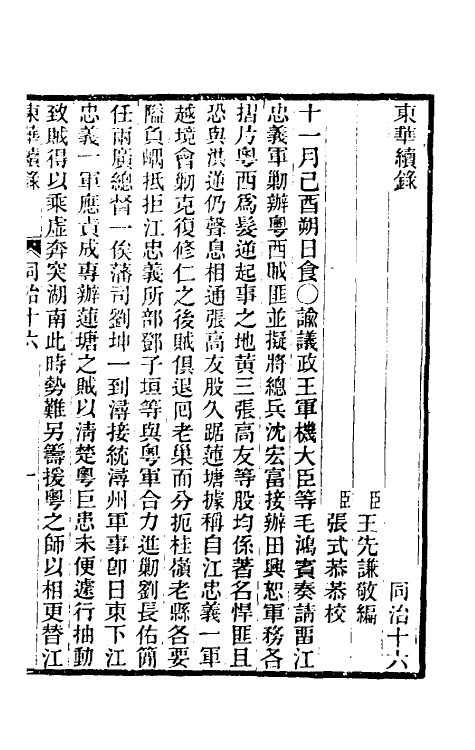 東華續錄
同治十六
臣王先謙敬編
臣張式恭恭校
十一月己酉朔日食○諭議政王軍機大臣等毛鴻賓奏請畱江
忠義軍勦辦粵西賊匪並擬將總兵沈宏富接辦田興恕軍務各
摺片粵西爲髮逆起事之地黃三張高友等股均係著名悍匪且
恐與洪逆仍聲息相通張高友股久踞蓮塘據稱自江忠義一軍
越境會勦克復修仁之後賊俱退囘老巢而分扼桂嶺老縣各要
隘負嵎抵拒江忠義所部鄧子垣等與粵軍合力進勦劉長佑簡
任兩廣總督一俟藩司劉坤一到潯接統潯州軍事卽日東下江
忠義一軍應責成專辦蓮塘之賊以淸楚粵巨患未便遽行抽動
致賊得以乘虛奔突湖南此時勢難另籌援粵之師以相更替江
東華續錄
同治十六
一